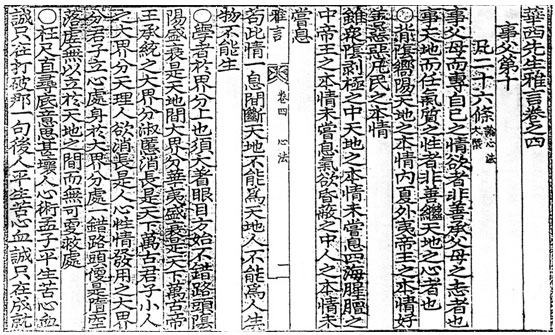 華西先生雅言卷之四
事父第十
凡二十六條 論心法
事父母而專自己之情欲者非善承父母之志者也
事天地而任氣質之性者非善繼天地之心者也
○抑陰嚮陽天地之本情內夏外夷帝王之本情好
善惡惡凡民之本情
雖衆陰剝極之中天地之本情未嘗息四海腥膻之
中帝王之本情未嘗息氣欲昏蔽之中人之本情未
嘗息
雅言 卷四 心法 一
苟此情一息間斷天地不能爲天地人不能爲人生
物不能生
○學者於界分上也須大著眼目方始不錯路頭陰
陽盛衰是天地間大界分華夷盛衰是天下萬古帝
王承統之大界分淑慝消長是天下萬古君子小人
之大界分天理人欲消長是人心性情發用之大界
分君子立心處身於大界分處一錯路頭便是墮
落處無以立於天地之間而無可救處
○枉尺直尋底意思甚壞人心術孟子平生苦心血
誠只在打破那一句後人平生苦心血誠只在成就